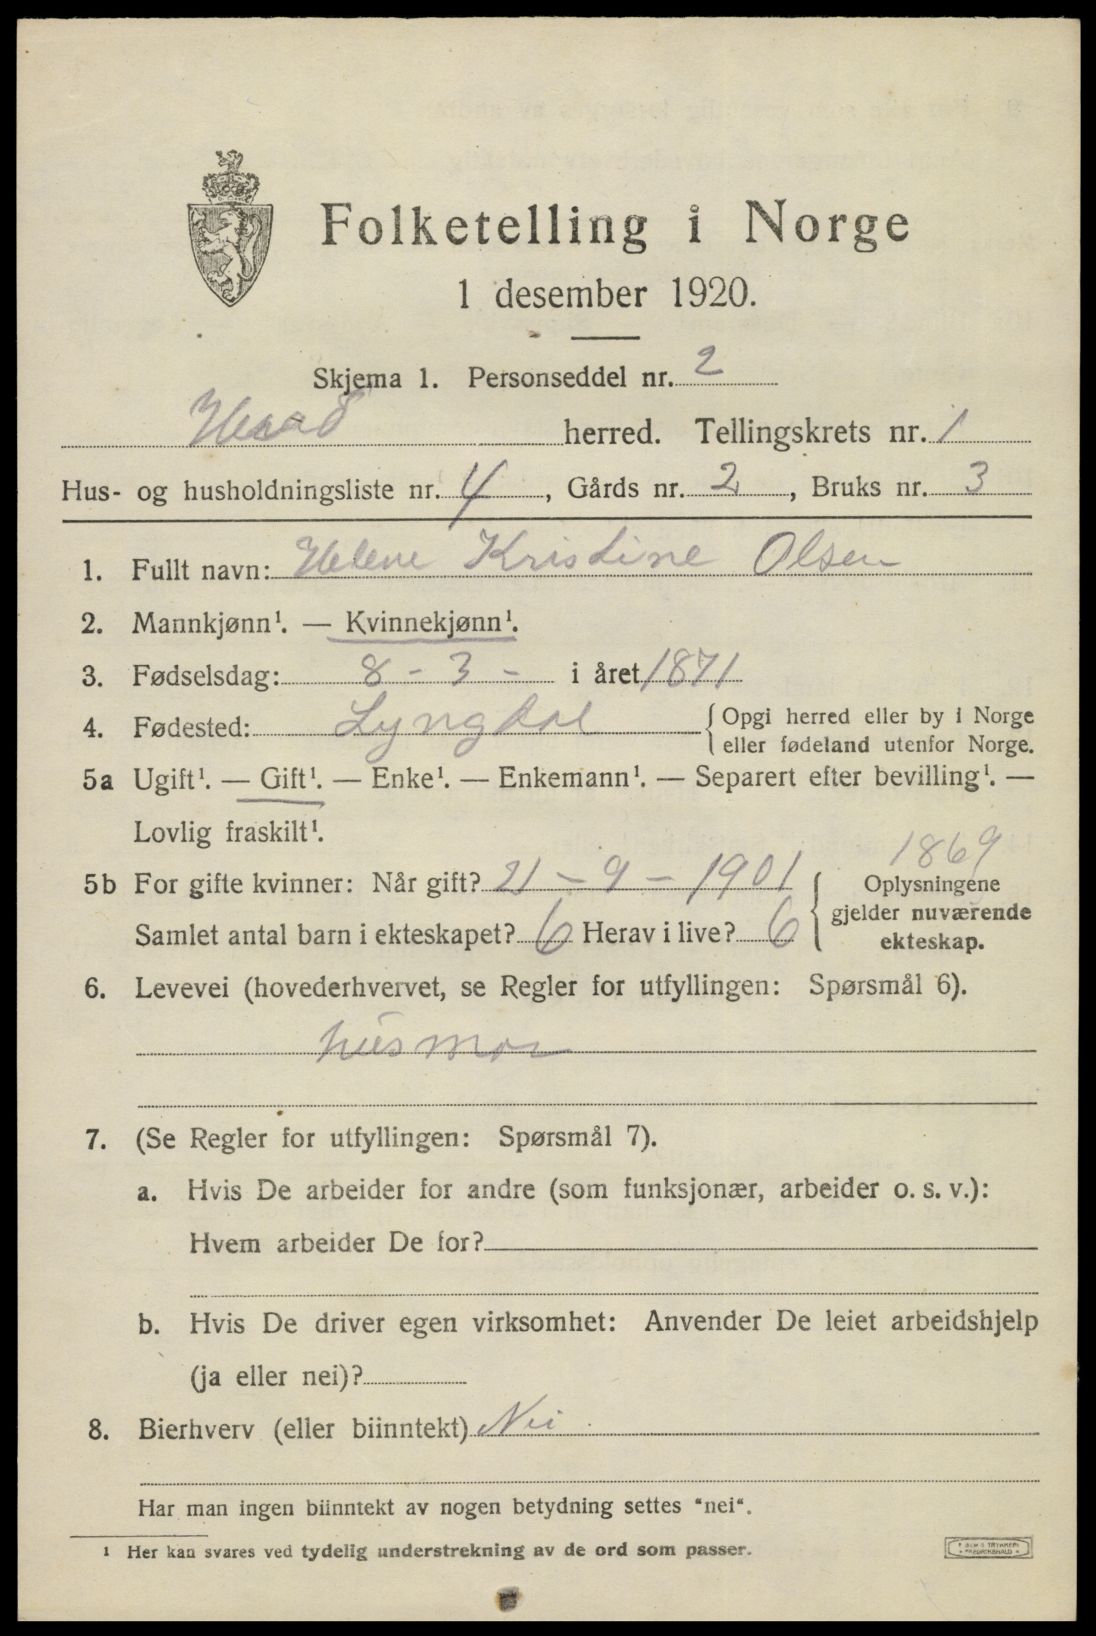 Folketelling i Norge
1 desember 1920.
Skjema 1. Personseddel nr. 2
herred. Tellingskrets nr. 1
Hus- og husholdningsliste nr. 4, Gårds nr. 2, Bruks nr. 3
1. Fullt navn: Helene Kristine Olsen
2. Mannkjønn¹. — Kvinnekjønn¹.
3. Fødselsdag: 8 - 3 - i året 1871
4. Fødested: Lyngdal {Opgi herred eller by i Norge
eller fødeland utenfor Norge.
5a Ugift¹. — Gift¹. — Enke¹. — Enkemann¹. — Separert efter bevilling¹. —
Lovlig fraskilt¹.
1869
5b For gifte kvinner: Når gift? 21 - 9 - 1901 { Oplysningene
gjelder nuværende
Samlet antal barn i ekteskapet? 6 Herav i live? 6 ekteskap.
6. Levevei (hovederhvervet, se Regler for utfyllingen: Spørsmål 6).
husmor
7. (Se Regler for utfyllingen: Spørsmål 7).
a. Hvis De arbeider for andre (som funksjonær, arbeider o. s. v.):
Hvem arbeider De for?
b. Hvis De driver egen virksomhet: Anvender De leiet arbeidshjelp
(ja eller nei)?
8. Bierhverv (eller biinntekt) Nei.
Har man ingen biinntekt av nogen betydning settes "nei".
¹ Her kan svares ved tydelig understrekning av de ord som passer.